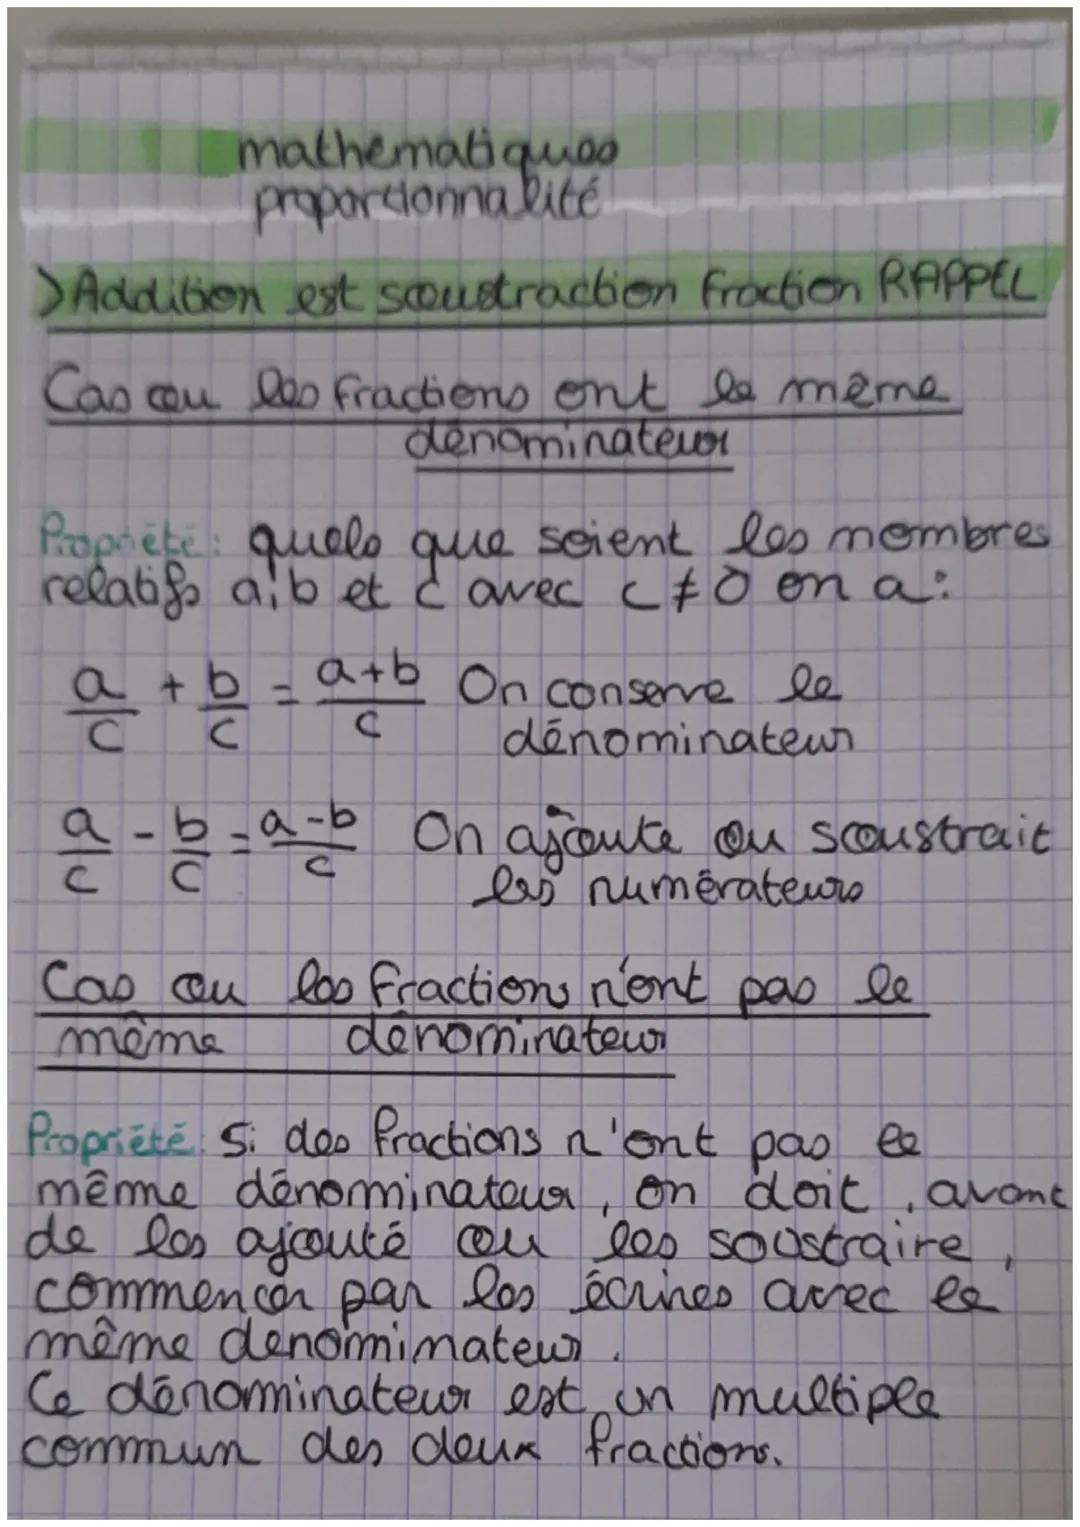 mathématiques
proportionnalité
Addition est soustraction fraction RAPPEL
Cas ou les fractions ont le même
dénominateur
Propriété : quels que soient les nombres
relatifs a;b et c avec c ≠ 0 on a :
a/c + b/c = a+b/c On conserve le
dénominateur
a/c - b/c = a-b/c On ajoute ou soustrait
les numérateurs
Cas ou les fractions n'ont pas le
même dénominateur
Propriété : Si des fractions n'ont pas le
même dénominateur, on doit, avant
de les ajouté ou les soustraire,
commencer par les écrires avec le
même denominateur.
Ce dénominateur est un multiple
commun des deux fractions.